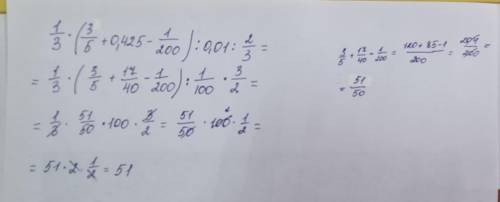 1/3 · (3/5 + 0,425 − 1/200) : 0,01 : 2/3 =
= 1/3 · (3/5 + 17/40 − 1/200) : 1/100 · 3/2 =
= 1/3 · 51/50 · 100 · 3/2 = 51/50 · 100 · 1/2 =
= 51 · 2 · 1/2 = 51
3/5 + 17/40 − 1/200 = (120 + 85 − 1)/200 = 204/200 =
= 51/50